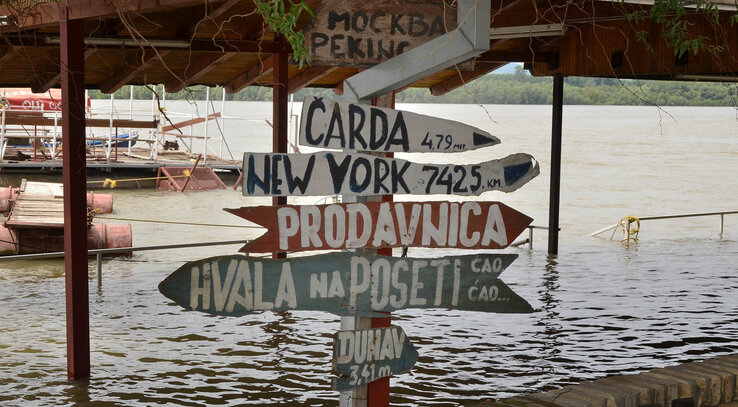 МОСКВА
PEKING
ČARDA 4,79 MET.
NEW YORK 7425.KM
PRODAVNICA
HVALA NA POSETI ĆAO
ĆAO...
DUNAV
3,41 m